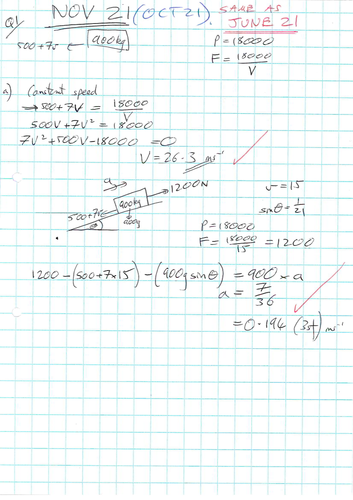 NOV 21 (OCT 21). SAME AS JUNE 21
Q1
500+7v ← 900kg
P = 18000
F = 18000/V
a) Constant speed
→ 500+7V = 18000/V
500V+7V² = 18000
7V²+500V-18000 = 0
V = 26.3 ms⁻¹
a
1200N
900kg
500+7v
900g
θ
v=15
sinθ = 1/21
P=18000
F = 18000/15 = 1200
1200-(500+7×15)-(900gsinθ) = 900×a
a = 7/36
= 0.194 (3sf) ms⁻¹